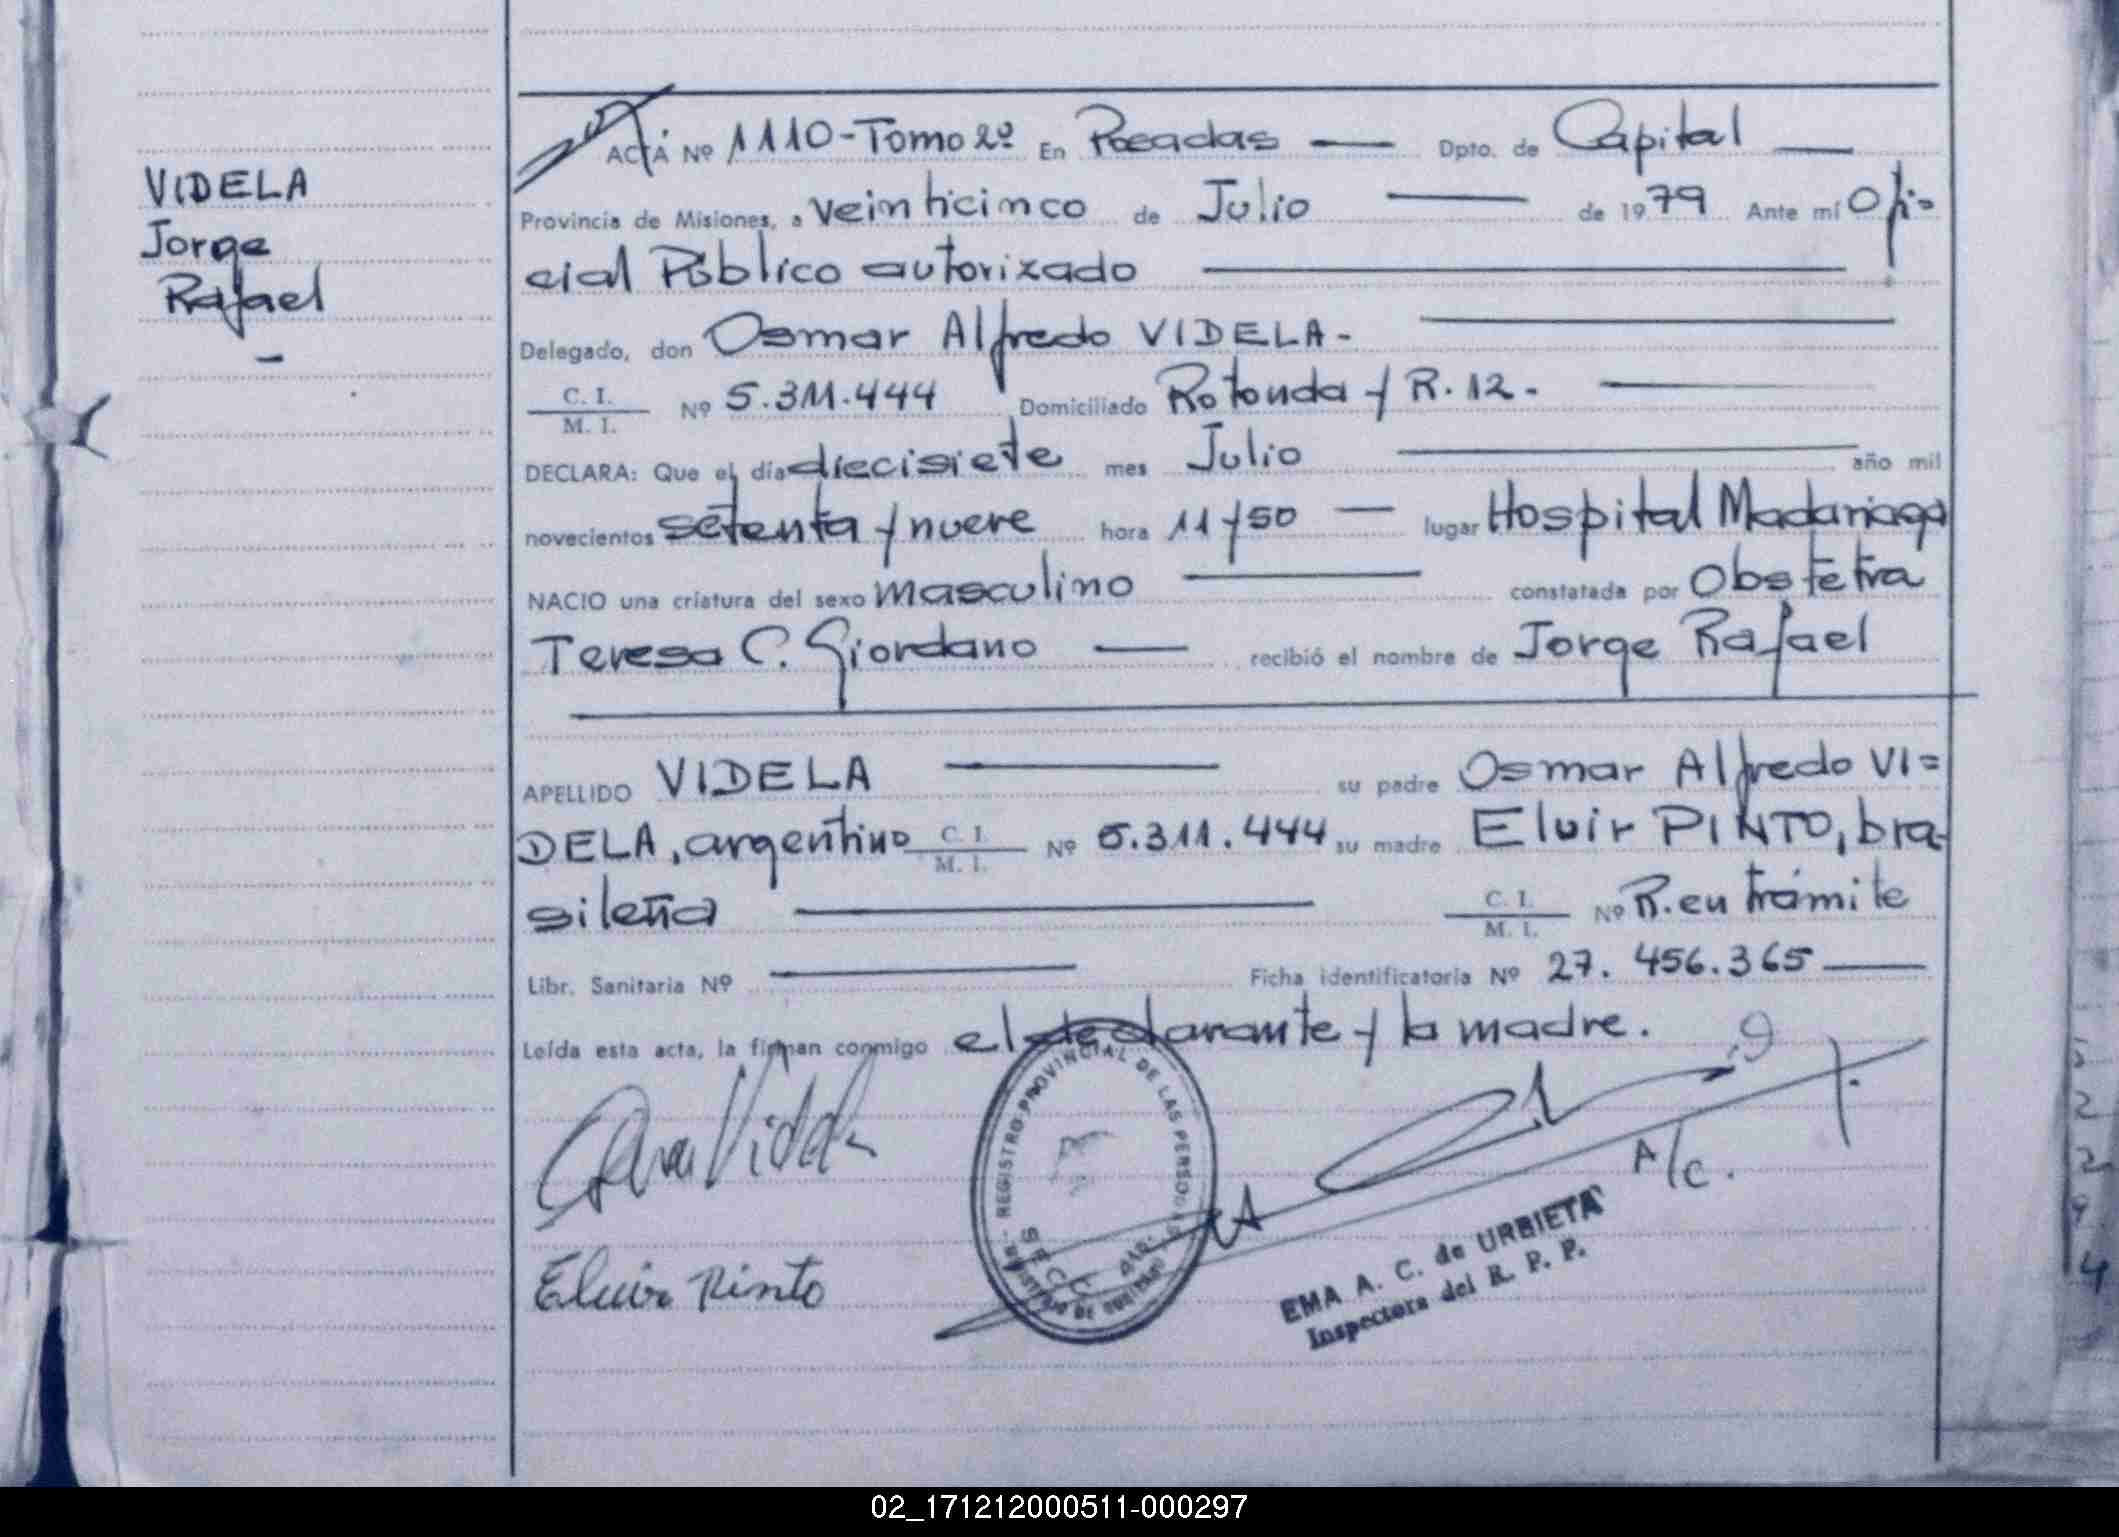 VIDELA
Jorge
Rafael
-
ACTA Nº 1110-Tomo 2º En Posadas — Dpto. de Capital —
Provincia de Misiones, a veinticinco de Julio — de 1979 Ante mí Ofi=
cial Público autorizado —
Delegado, don Osmar Alfredo VIDELA.- —
C. I.
M. I. Nº 5.311.444 Domiciliado Rotonda y R. 12.- —
DECLARA: Que el día diecisiete mes Julio — año mil
novecientos setenta y nueve hora 11 y 50 — lugar Hospital Madariaga
NACIO una criatura del sexo masculino — constatada por Obstetra
Teresa C. Giordano — recibió el nombre de Jorge Rafael
APELLIDO VIDELA — su padre Osmar Alfredo VI=
DELA, argentino C. I.
M. I. Nº 5.311.444 su madre Eluir PINTO, bra-
sileña — C. I.
M. I. Nº R. en trámite
Libr. Sanitaria Nº — Ficha identificatoria Nº 27. 456.365 —
Leída esta acta, la firman conmigo el declarante y la madre.
Videla
Eluir Pinto
REGISTRO PROVINCIAL DE LAS PERSONAS
SECC.
A/c.
EMA A. C. de URBIETA
Inspectora del R. P. P.
5
2
2
9
4
02_171212000511-000297